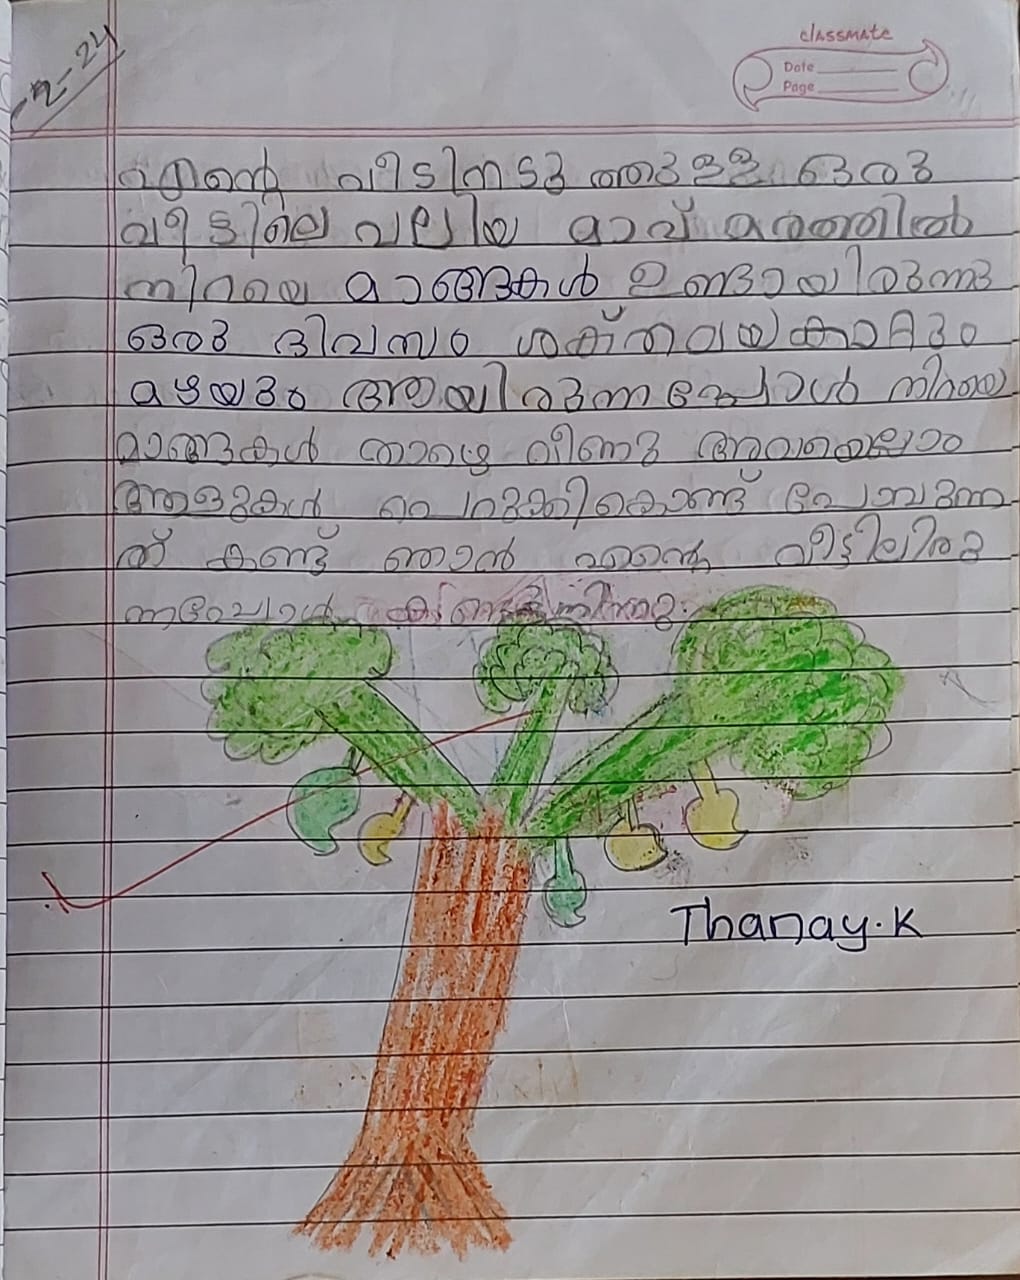 -2-24
classmate
Date
Page
എന്റെ വീടിനടുത്തുള്ള ഒരു
വീട്ടിലെ വലിയ മാവ് മരത്തിൽ
നിറയെ മാങ്ങകൾ ഉണ്ടായിരുന്നു
ഒരു ദിവസം ശക്തമായകാറ്റും
മഴയും ആയിരുന്നപ്പോൾ നിറയെ
മാങ്ങകൾ താഴെ വീണു അവയെല്ലാം
ആളുകൾ പെറുക്കികൊണ്ട് പോവുന്ന
ത് കണ്ട് ഞാൻ എന്റെ വീട്ടിലിരു
ന്നപ്പോൾ
Thanay.K